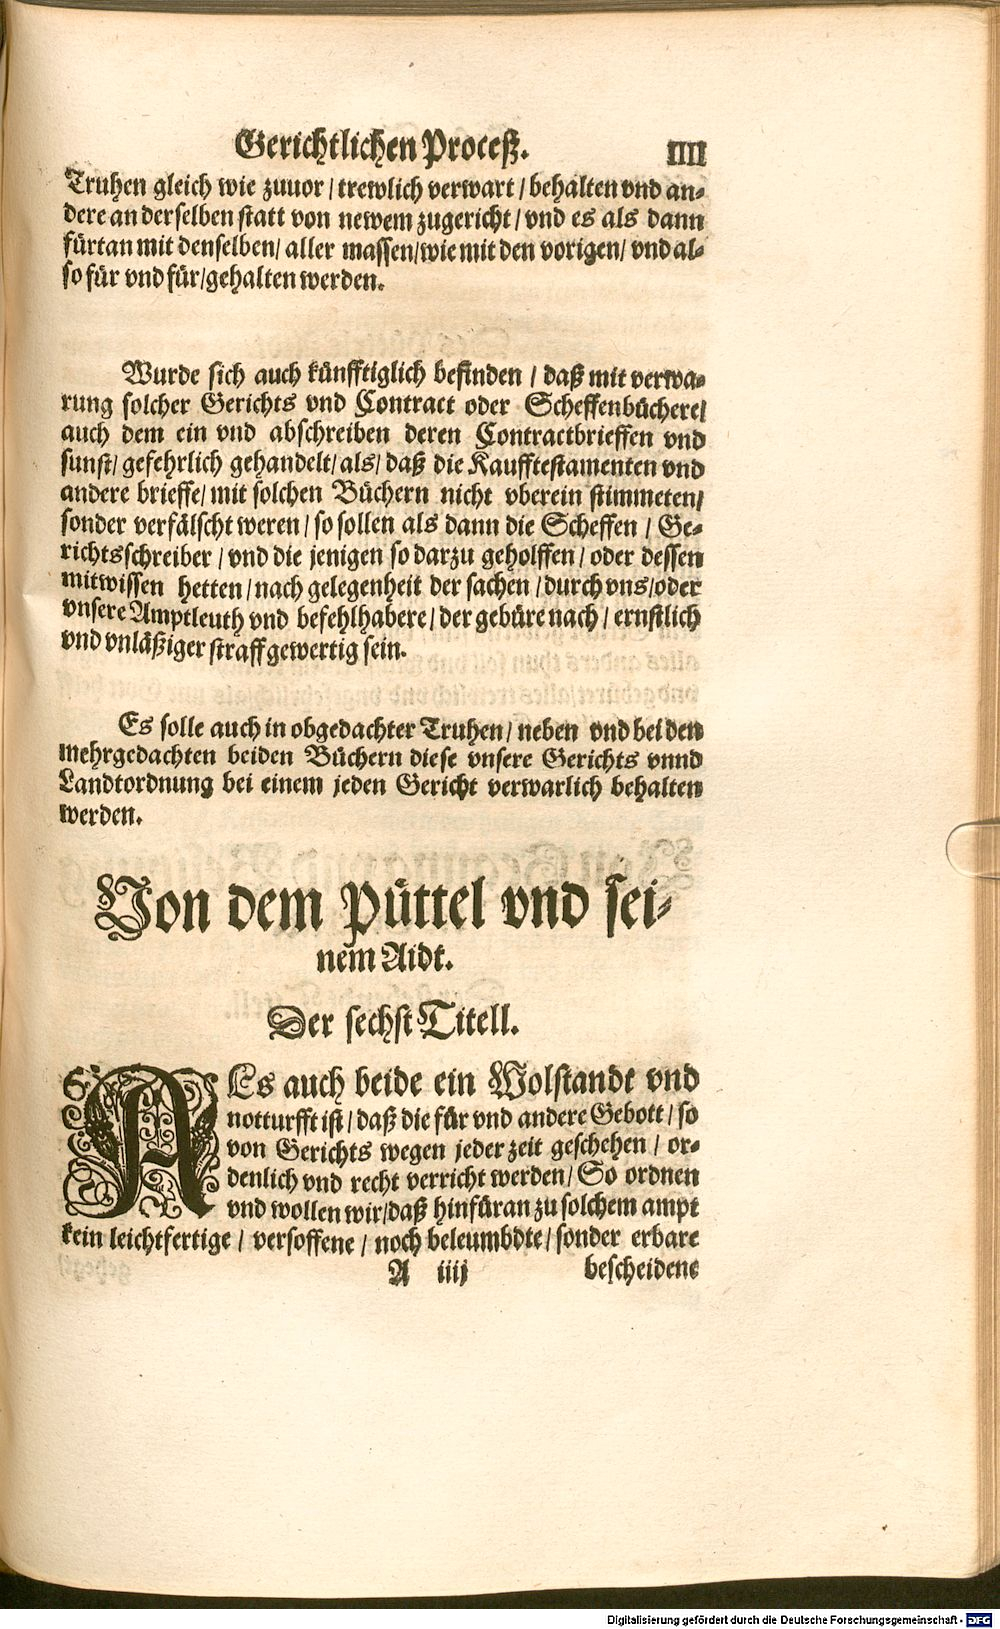 Gerichtlichen Proceß. IIII
Truhen gleich wie zuuor / trewlich verwart / behalten vnd an-
dere an derselben statt von newem zugericht / vnd es als dann
fürtan mit denselben / aller massen / wie mit den vorigen / vnd al-
so für vnd für / gehalten werden.
Wurde sich auch künfftiglich befinden / daß mit verwa-
rung solcher Gerichts vnd Contract oder Scheffenbüchere /
auch dem ein vnd abschreiben deren Contractbrieffen vnd
sunst / gefehrlich gehandelt / als / daß die Kaufftestamenten vnd
andere brieffe / mit solchen Büchern nicht vberein stimmeten /
sonder verfälscht weren / so sollen als dann die Scheffen / Ge-
richtsschreiber / vnd die jenigen so darzu geholffen / oder dessen
mitwissen hetten / nach gelegenheit der sachen / durch vns / oder
vnsere Amptleuth vnd befehlhabere / der gebüre nach / ernstlich
vnd vnläßiger straff gewertig sein.
Es solle auch in obgedachter Truhen / neben vnd bei den
mehrgedachten beiden Büchern diese vnsere Gerichts vnnd
Landtordnung bei einem jeden Gericht verwarlich behalten
werden.
Von dem Püttel vnd sei-
nem Aidt.
Der sechst Titell.
AEs auch beide ein Wolstandt vnd
notturfft ist / daß die für vnd andere Gebott / so
von Gerichts wegen jeder zeit geschehen / or-
denlich vnd recht verricht werden / So ordnen
vnd wollen wir / daß hinfüran zu solchem ampt
kein leichtfertige / versoffene / noch beleumbdte / sonder erbare
A iiij bescheidene
Digitalisierung gefördert durch die Deutsche Forschungsgemeinschaft - DFG